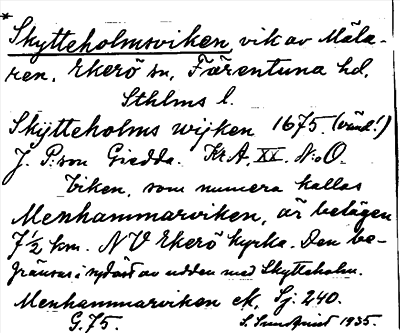 *
Skytteholmsviken, vik av Mäla-
ren, Ekerö sn, Färentuna hd,
Sthlms l.
Skÿtteholms wijken 1675. (vänd!)
J. P:son Giedda. KrA, XX. N:o O.
Viken, som numera kallas
Menhammarviken, är belägen
7½ km. NV Ekerö kyrka. Den be-
gränsas i sydöst av udden med Skytteholm.
Menhammarviken ek, Sj. 240.
G.75. S. Sundquist 1935.